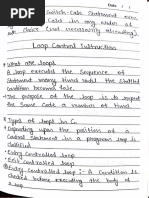 Date / /
Switch-Case Statement exec
Cases in any order of
choice (not necessarily ascending).
Loop Control Instruction
* What are loops
A loop executed the Sequence of
Statement many times until the stated
Condition becomes false.
* The purpose of the loop is to repeat
the Same Code a number of times.
* Types of loops in C:
Depending upon the position of a
Control Statement in a program loop is
classified
Entry Controlled loop
Exit Controlled loop
Entry Controlled loop :- A Condition is
checked before executing the body of
a loop.